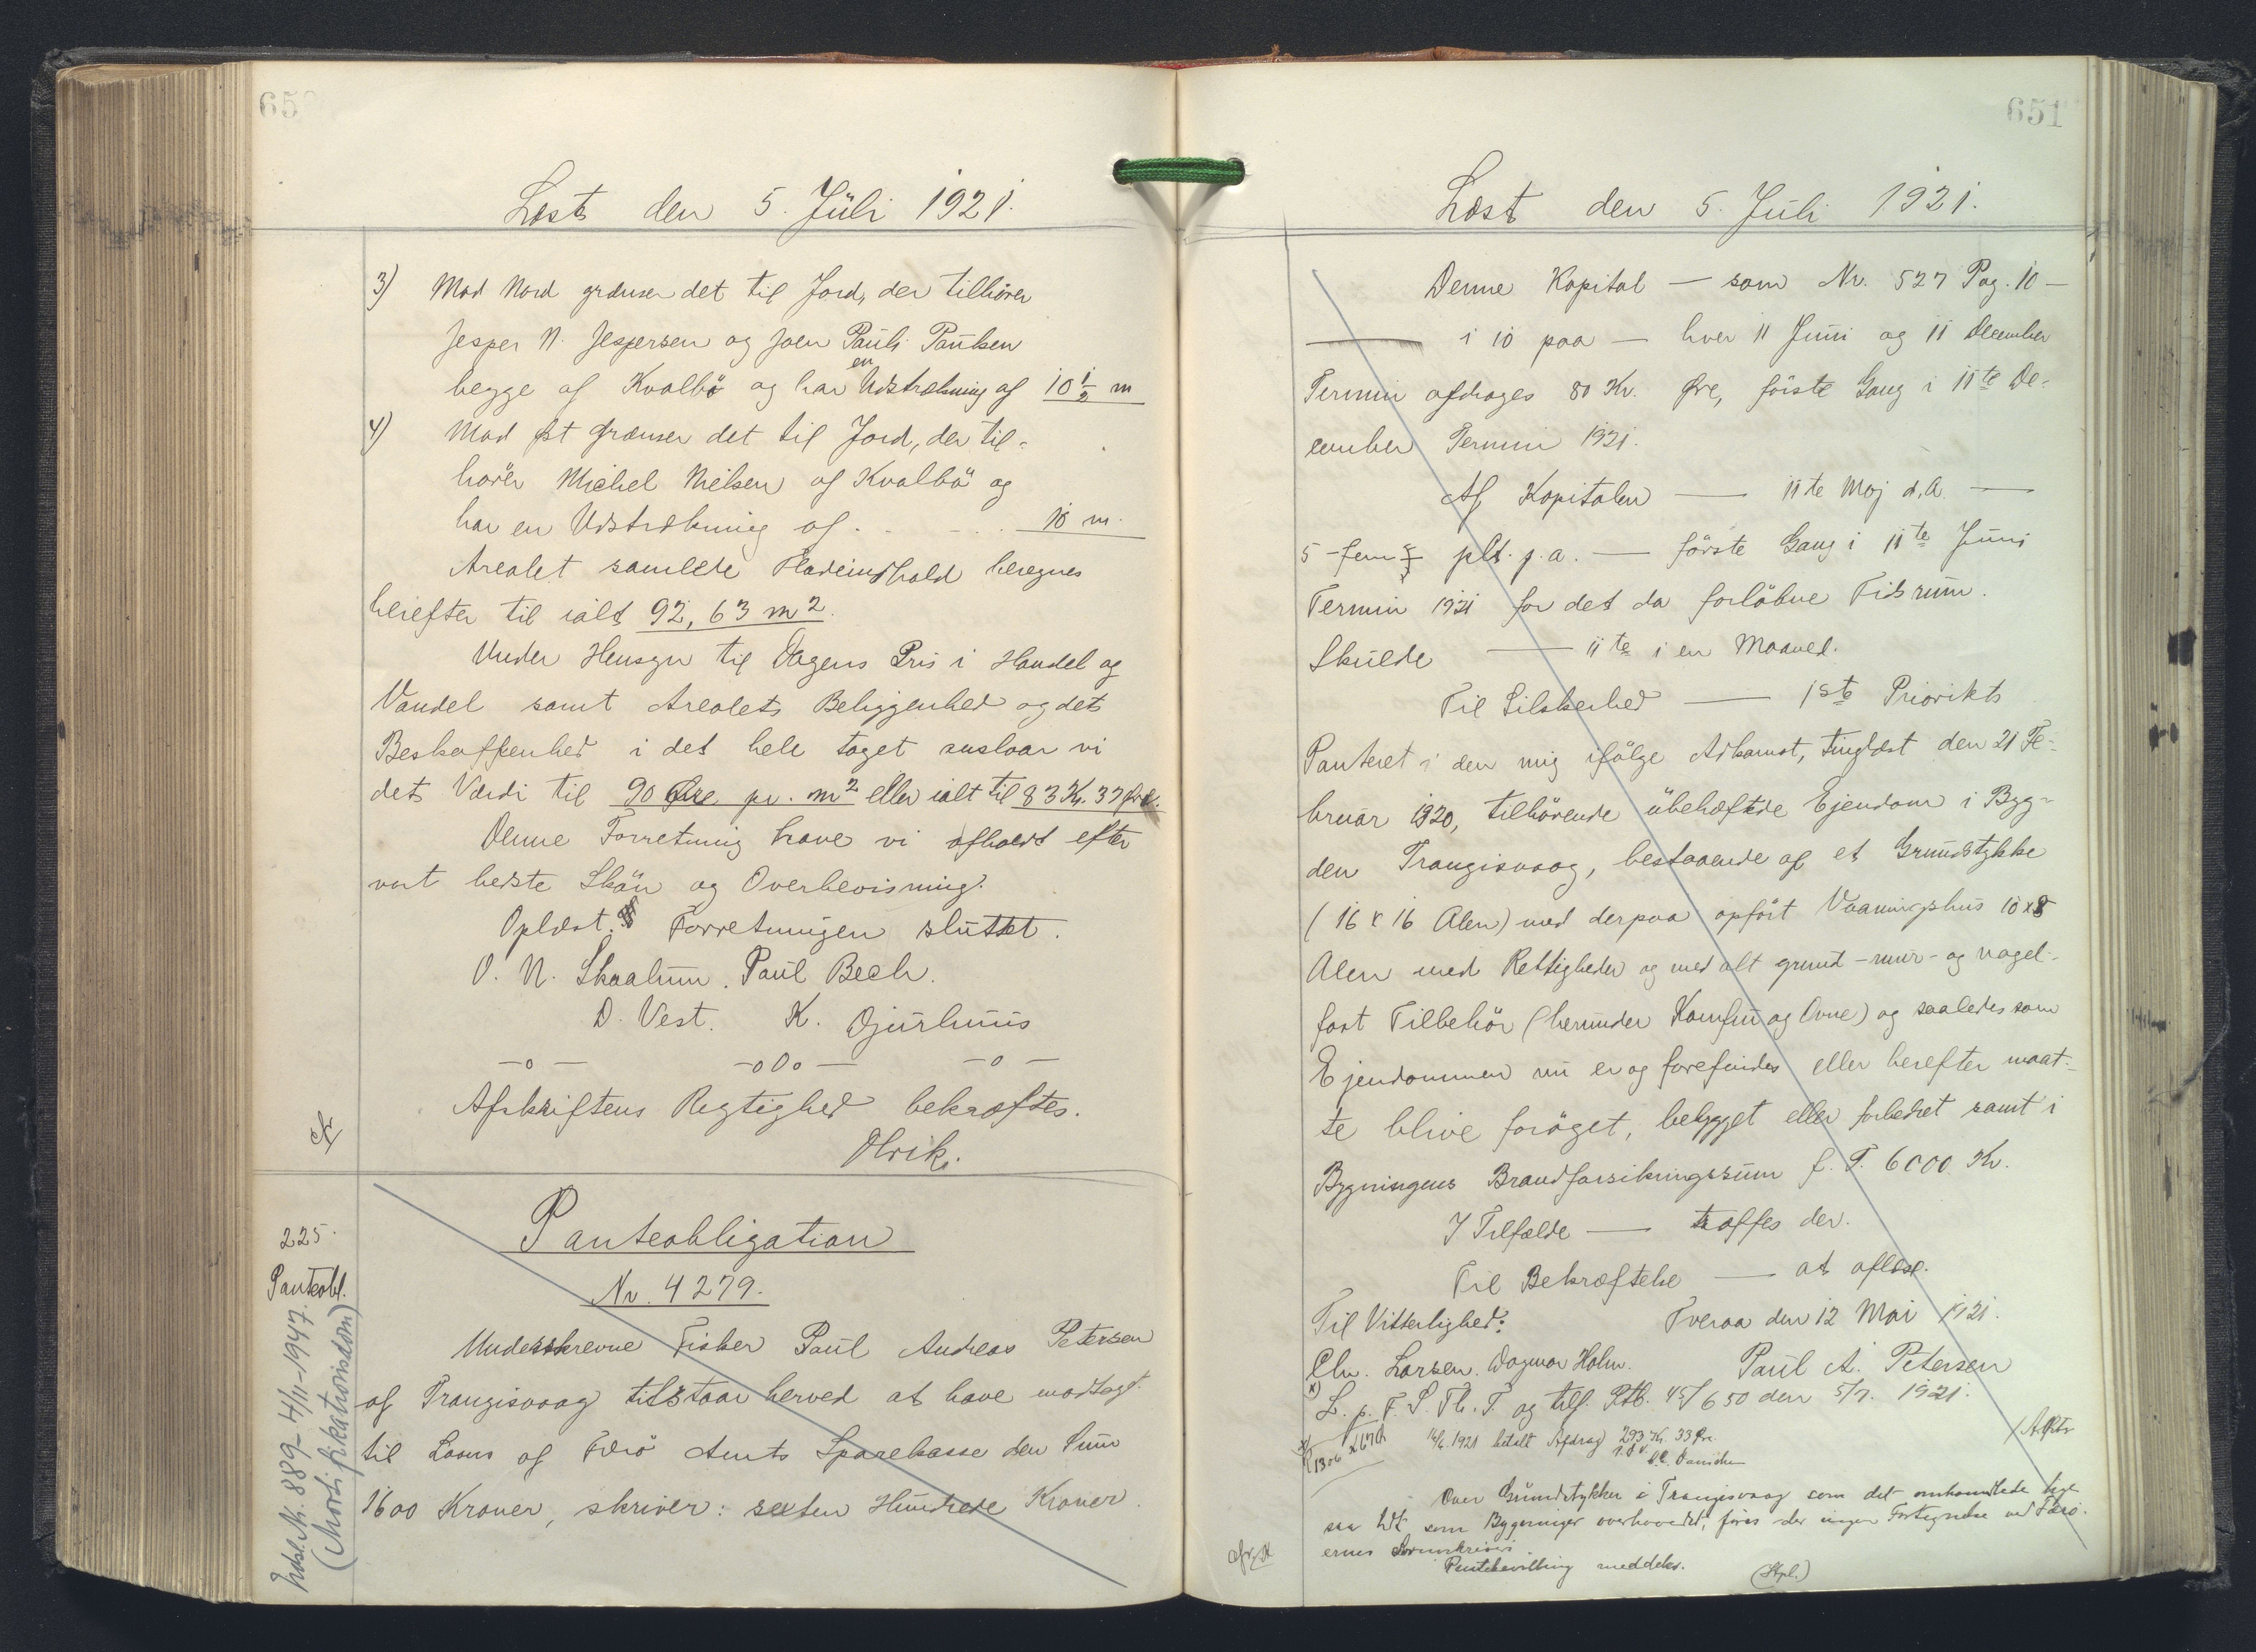 65
Læst den 5. Juli 1921.
3) Mod Nord grænser det til Jord, der tilhører
Jesper N. Jespersen og Joen Pauli Paulsen
begge af Kvalbø og har en Udstrækning af 10 1/2 m
4) Mod Øst grænser det til Jord, der til-
hører Michel Nielsen af Kvalbø og
har en Udstrækning af . . . . 10 m.
Arealet samlede Fladeindhold beregnes
herefter til ialt 92,63 m2.
Under Hensyn til Dagens Pris i Handel og
Vandel samt Arealets Beliggenhed og dets
Beskaffenhed i det hele taget ansloar vi
dets Værdi til 90 Øre pr. m2 eller ialt til 83 Kr. 37 Øre.
Denne Forretning have vi afholdt efter
vort bedste Skøn og Overbevisning.
Oplæst. Forretningen sluttet.
O. N. Skaalum. Paul Bech.
D. Vest. K. Djurhuus
-o- -oOo- -o-
Afskriftens Rigtighed bekræftes.
Olrik.
225.
Panteobl.
Indsl. Nr. 889-4/11-1947.
(Mortifikationsdom)
Panteobligation
Nr. 4279.
Underskrevne Fisker Paul Andreas Petersen
af Trangisvaag tilstaar herved at have modtaget
til Laans af Færø Amts Sparekasse den Sum
1600 Kroner, skriver: sexten Hundrede Kroner.
651
Læst den 5. Juli 1921.
Denne Kapital — som Nr. 527 Pag. 10 —
— i 10 paa — hver 11 Juni og 11 December
Termin afdrages 80 Kr. Øre, første Gang i 11te De-
cember Termin 1921.
Af Kapitalen — 11te Maj d.A. —
5 - fem pCt. p.a. — første Gang i 11te Juni
Termin 1921 for det da forløbne Tidsrum.
Skulde — 11te i en Maaned.
Til Sikkerhed — 1ste Prioritets
Panteret i den mig ifølge Adkomst, tinglæst den 21 Fe-
bruar 1920, tilhørende ubehæftede Ejendom i Byg-
den Trangisvaag, bestaaende af et Grundstykke
(16 x 16 Alen) med derpaa opført Vaaningshus 10 x 8
Alen med Rettigheder og med alt grund-mur- og nagel-
fast Tilbehør (herunder Komfur og Ovne) og saaledes som
Ejendommen nu er og forefindes eller herefter maat-
te blive forøget, bebygget eller forbedret samt i
Bygningens Brandforsikringssum f. T. 6000 Kr.
I Tilfælde — træffes der.
Til Bekræftelse — at aflæse.
Til Vitterlighed: Tveraa den 12 Mai 1921.
Chr. Larsen. Dagmar Holm. Paul A. Petersen
x) L. p. F. S. Th. T. og tilf. Ptb. 45/650 den 5/7. 1921.
14/6. 1921 betalt Afdrag 293 Kr 33 Øre
Over Grundstykker i Trangisvaag som det omhandlede lige
saa lidt som Bygninger overhovedet, føres der ingen Fortegnelse ved Færø-
ernes Sorenskriveri.
meddeles. (Stpl.)